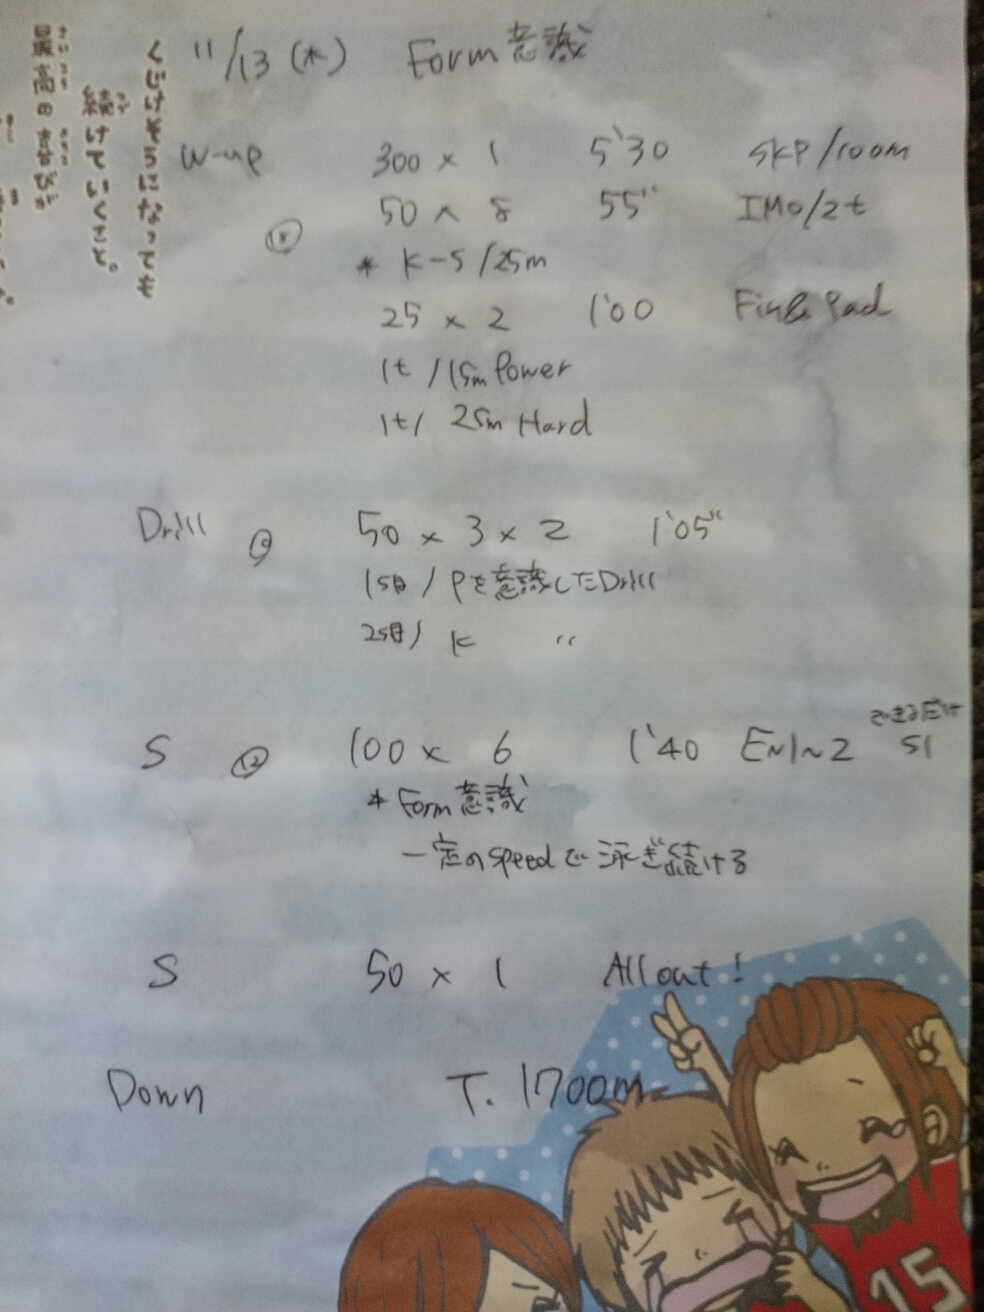 くじけそうになっても
続けていくこと。
最高の喜びが
11/13 (木) Form意識
W-up 300 × 1 5'30 SKP/100m
50 × 8 55" IMO/2t
⑱
* K-S /25m
25 × 2 1'00 Fin& Pad
1t /15m Power
1t/ 25m Hard
Drill ⑨ 50 × 3 × 2 1'05"
1S目/ Pを意識したDrill
2S目/ K 〃
S ⑫ 100 × 6 1'40 EN1~2 できるだけS1
* Form意識
一定のspeedで泳ぎ続ける
S 50 × 1 All out!
Down T. 1700m
15